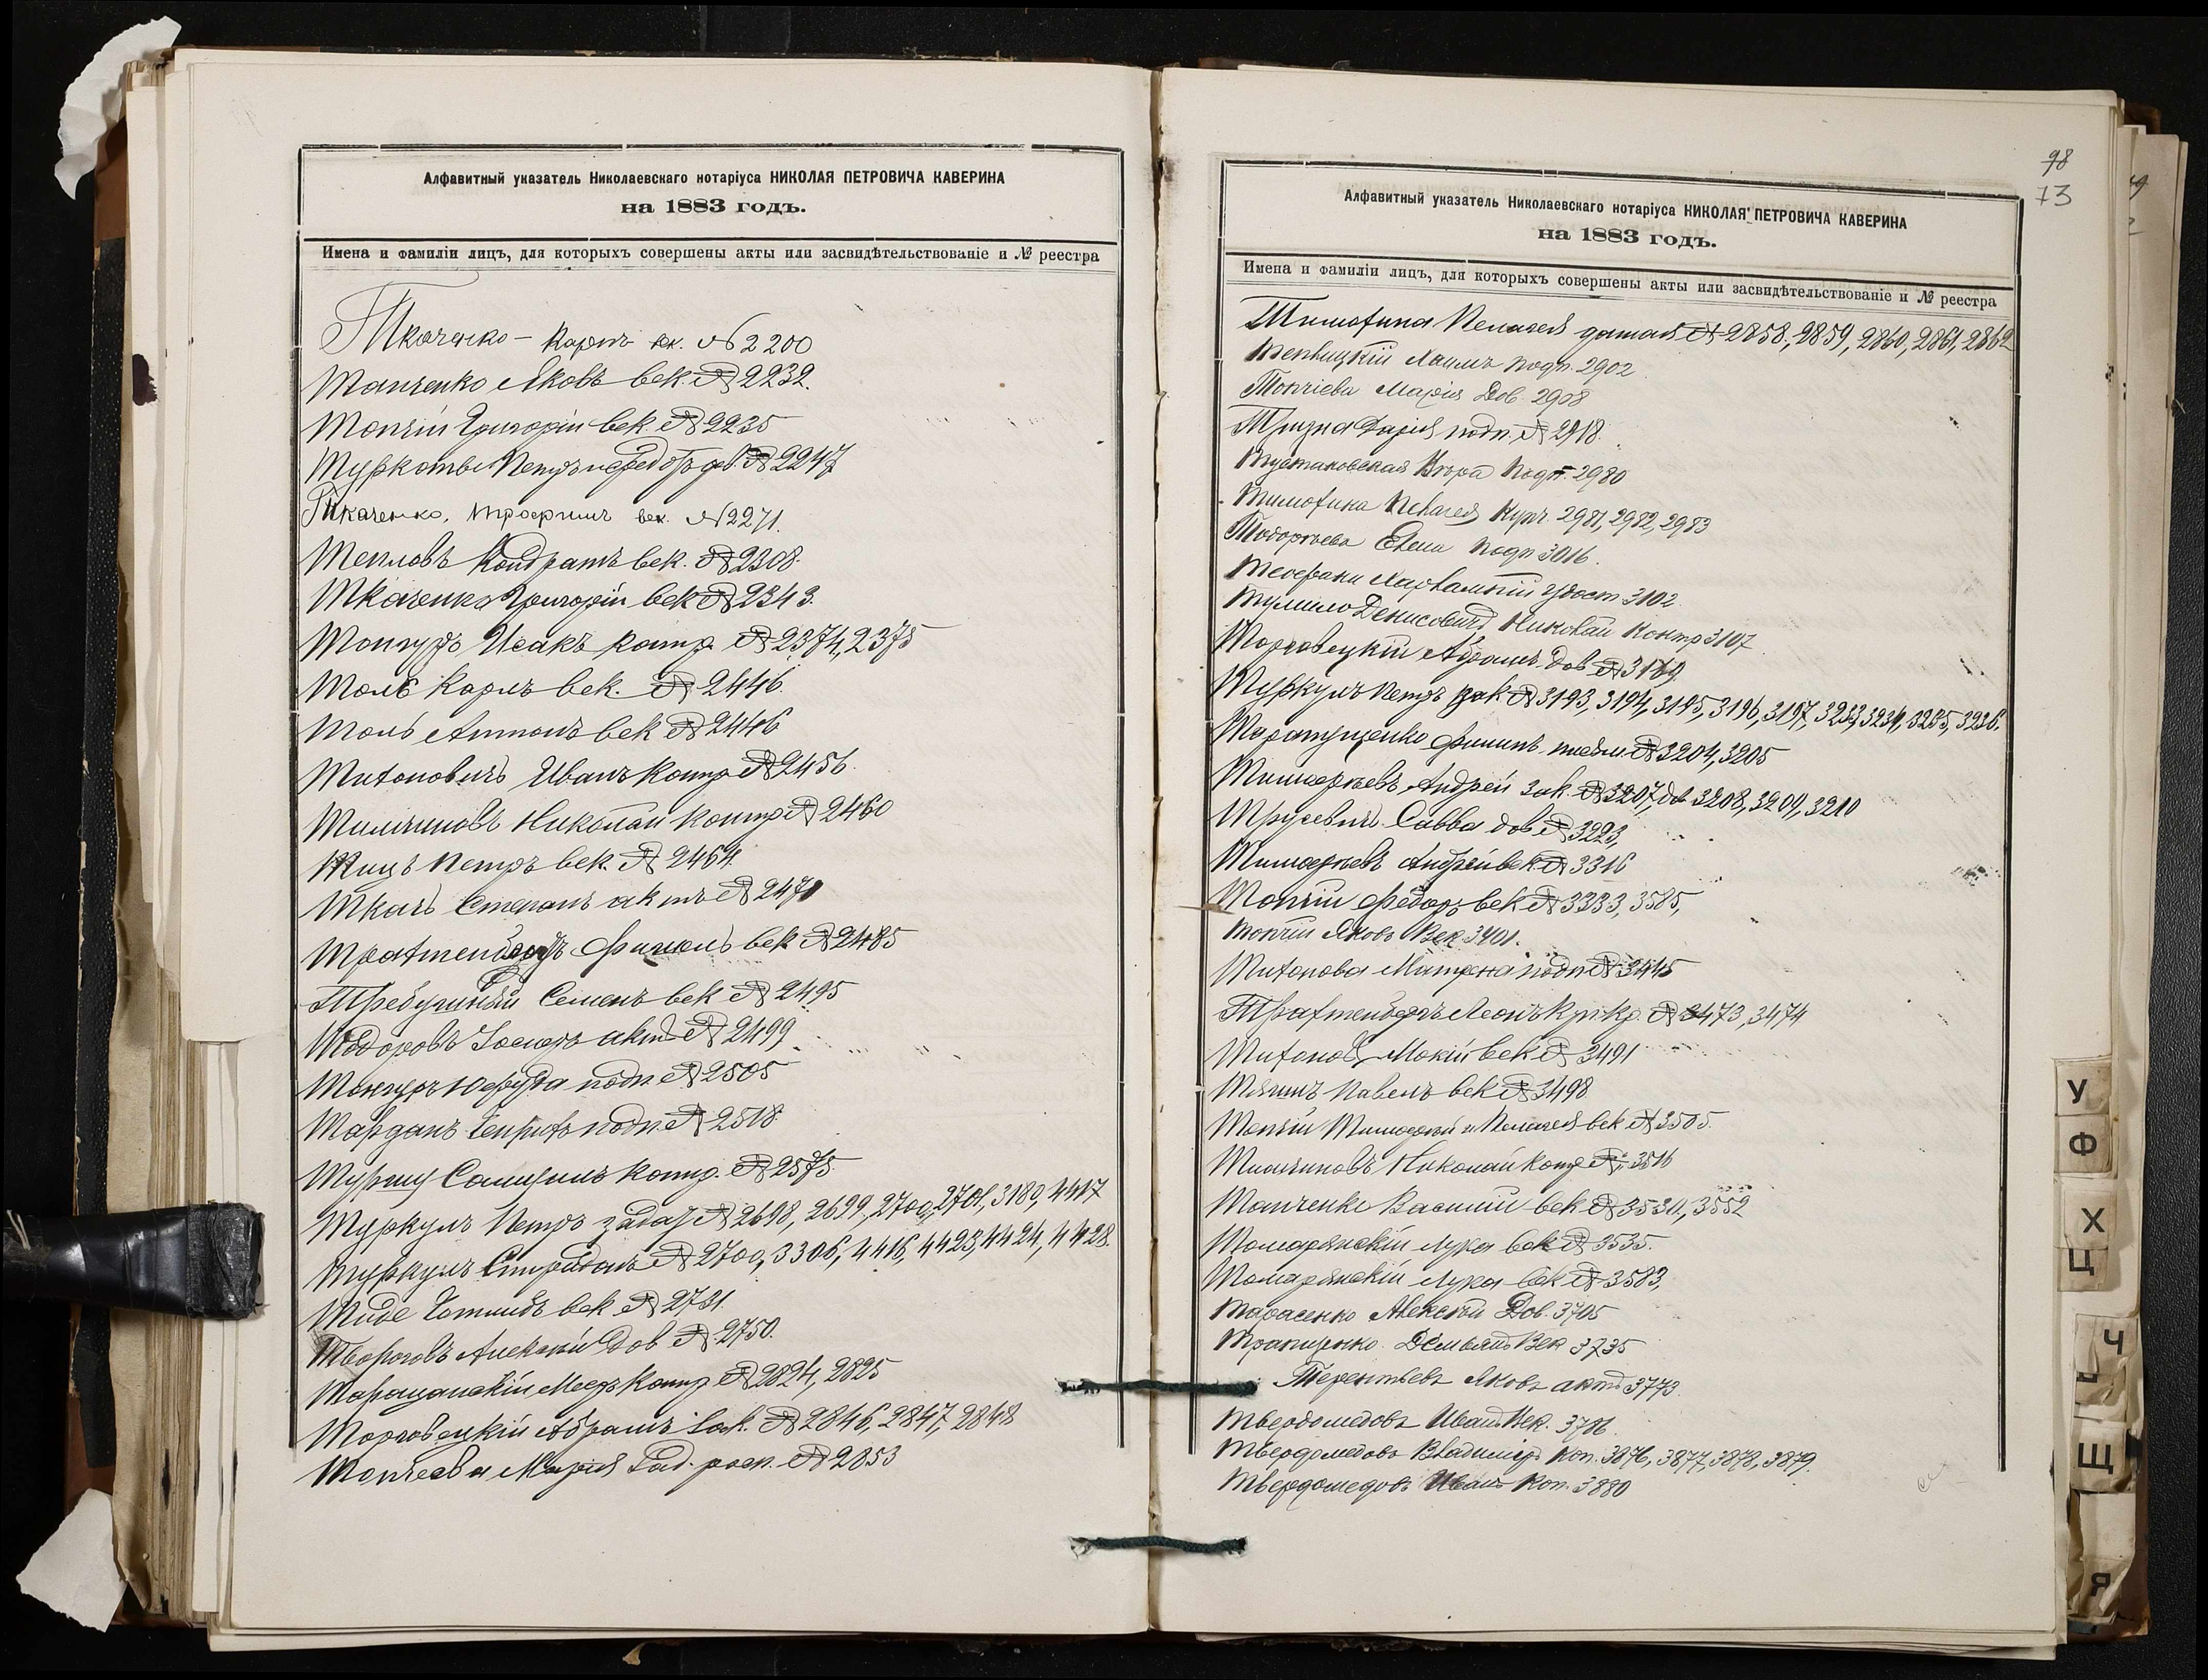 Алфавитный указатель Николаевскаго нотаріуса НИКОЛАЯ ПЕТРОВИЧА КАВЕРИНА
на 1883 годъ.
Имена и фамиліи лицъ, для которыхъ совершены акты или засвидѣтельствованіе и № реестра
Ткаченко - Карпъ вк. № 2200
Танченко Яковъ век. № 2232.
Топчій Григорій век. № 2235
Петръ и Федоръ № 2247
Ткаченко, Трофимъ век. № 2271.
Тепловъ Кондратъ век. № 2308.
Ткаченко Григорій век № 2343.
Тонгуръ Исакъ контр. № 2374, 2375
Толь Карлъ век. № 2446.
Толь Антонъ век № 2446
Титоновичъ Иванъ контр № 2456.
Тимчиновъ Николай контр № 2460
Тицъ Петръ век. № 2464.
Ткачъ Степанъ актъ № 2471
Трахтенбергъ век № 2485
Требушный Семенъ век № 2495
Тодоровъ Іосифъ актъ № 2499
Тонгуръ Юфуда подп № 2505
Тарданъ Генрихъ подп. № 2518
Самуилъ контр. № 2575.
Туркулъ Петръ задат № 2698, 2699, 2700, 2701, 3180, 4417
Туркулъ Спиридонъ № 2700, 3306, 4416, 4423, 4424, 4428.
Тиде Готлибъ век № 2731.
Твороговъ Алексѣй Дов № 2750.
Таращанскій контр № 2824, 2825
Торговецкій Абрамъ зак. № 2846, 2847, 2848
Топчіева Марія росп. № 2853
98
73
Алфавитный указатель Николаевскаго нотаріуса НИКОЛАЯ ПЕТРОВИЧА КАВЕРИНА
на 1883 годъ.
Имена и фамиліи лицъ, для которыхъ совершены акты или засвидѣтельствованіе и № реестра
Тимофина Пелагея № 2858, 2859, 2860, 2861, 2862
Хаимъ подп. 2902
Топчіева Марія Дов. 2908
Тризна Дарія подп. № 2918.
Тустановская подп. 2980
Тимофина Пелагея Купч. 2981, 2982, 2983
Тодорова Елена подп 3016.
Теофани Харлампій удост 3102.
Тулило Денисовичъ Николай контр 3107
Торговецкій Абрамъ дов № 3169.
Туркулъ Петръ зак № 3193, 3194, 3195, 3196, 3197, 3233, 3234, 3235, 3236.
Таратущенко Филипъ № 3204, 3205
Тимофѣевъ Андрей зак. № 3207, дов 3208, 3209, 3210
Трусевичъ Савва дов № 3223,
Тимофѣевъ Андрей век № 3316
Топчій Федоръ век № 3333, 3585,
Топчій Яковъ Век 3401.
Титонова Матрена подп № 3445
Трахтенбергъ Леонъ № 3473, 3474
Титоновъ Мокій век № 3491
Тягинъ Павелъ век № 3498
Топчій Тимофей и Пелагея век № 3505.
Тимчиновъ Николай контр № 3516
Танченко Василій век № 3530, 3552
Томарянскій Лука век № 3535.
Томарянскій Лука век № 3583,
Тарасенко Алексѣй Дов. 3705
Демьянъ Век 3735
Терентьевъ Яковъ актъ 3773.
Твердомедовъ Иванъ Век. 3786
Твердомедовъ Владиміръ коп. 3876, 3877, 3878, 3879.
Твердомедовъ Иванъ коп. 3880
У
Ф
Х
Ц
Ч
Щ
Я